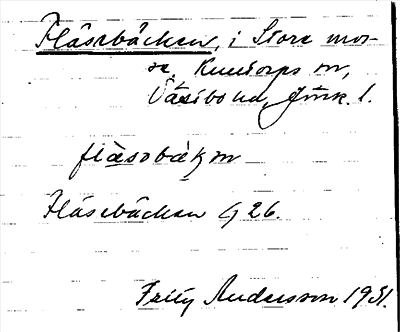 Fläsebäcken, i Store mos-
se, Kulltorps sn,
Västbo hd, Jönk. l.
fläsobäkm
Fläsebäcken G 26.
Fritz Andersson 1931.